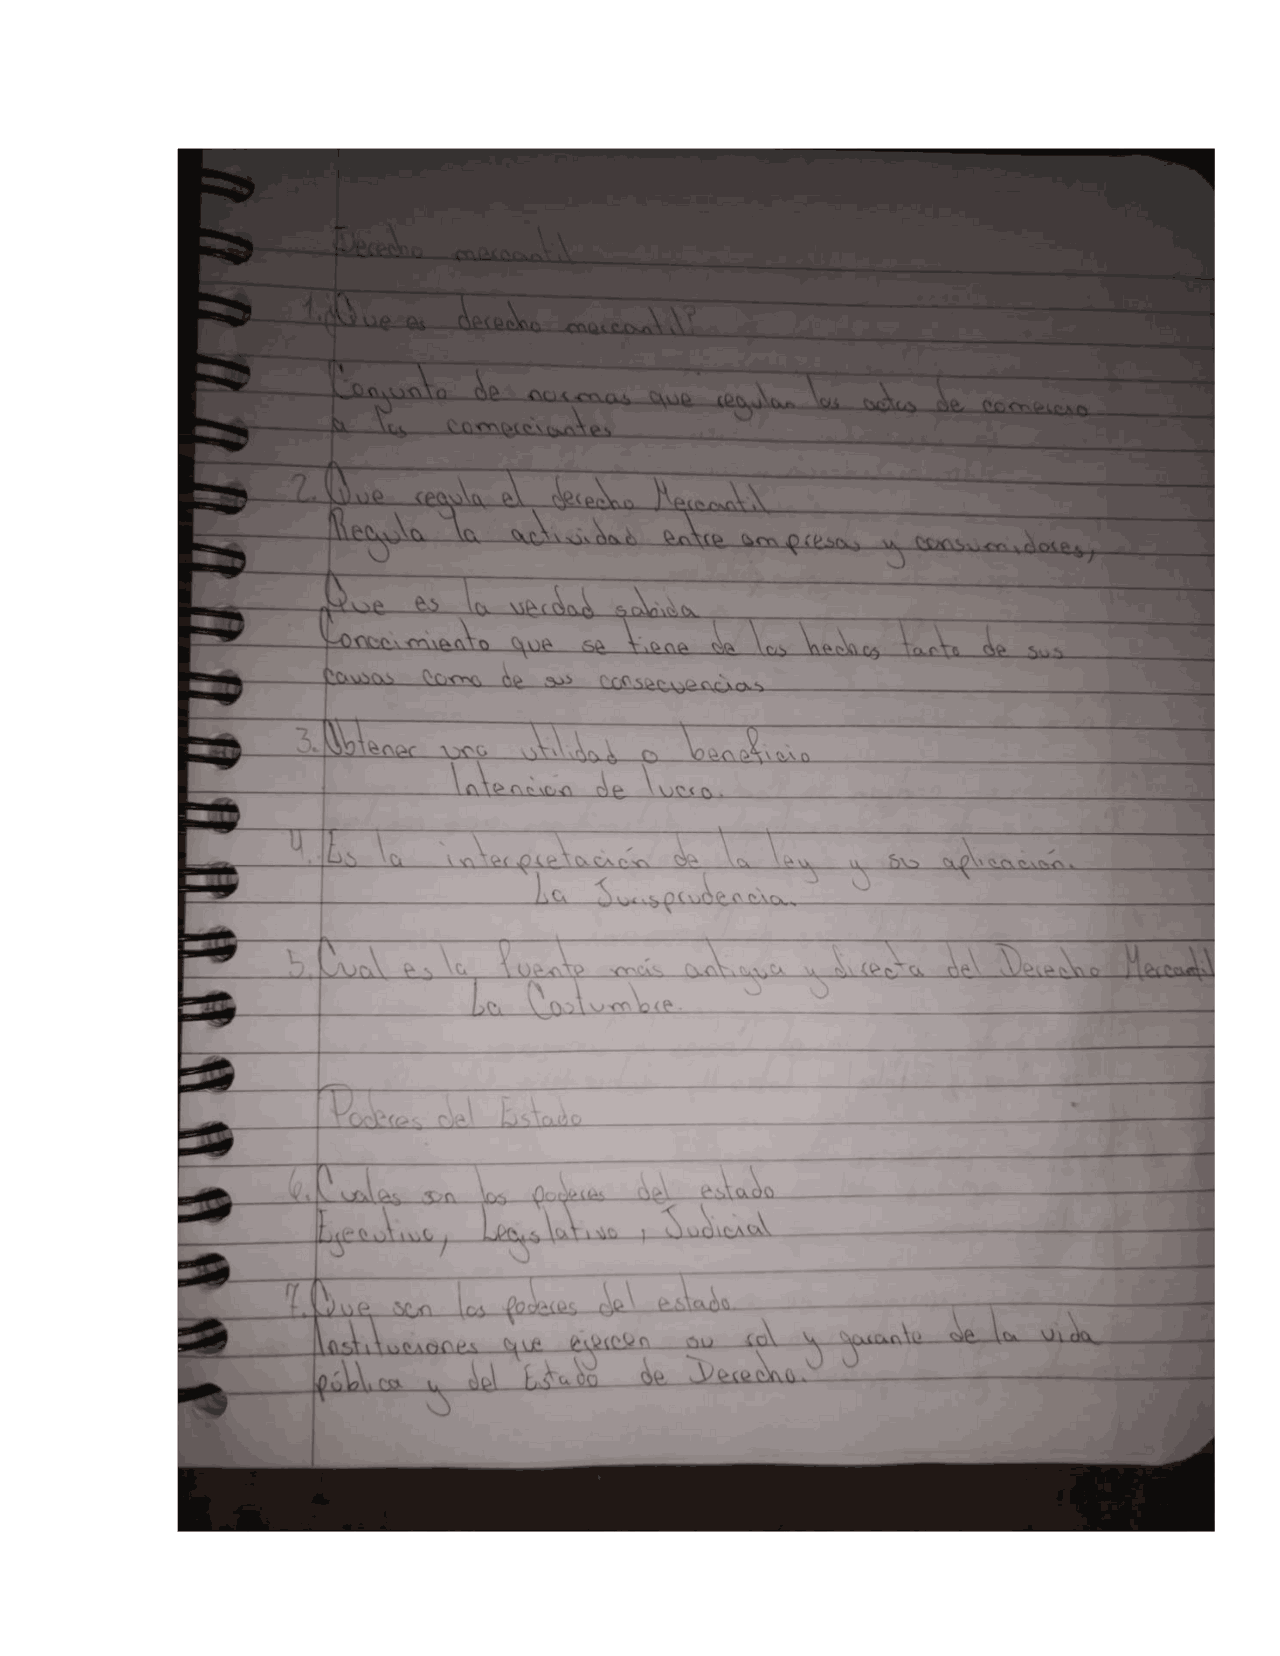 Derecho mercantil
1.¿Que es derecho mercantil?
Conjunto de normas que regulan los actos de comercio
a los comerciantes
2. Que regula el derecho Mercantil
Regula la actividad entre empresas y consumidores,
Que es la verdad sabida
Conocimiento que se tiene de los hechos tanto de sus
causas como de sus consecuencias
3. Obtener una utilidad o beneficio
Intención de lucro.
4. Es la interpretación de la ley y su aplicación.
La Jurisprudencia.
5. Cual es la fuente más antigua y directa del Derecho Mercantil
La Costumbre.
Poderes del Estado
6. Cuales son los poderes del estado
Ejecutivo, Legislativo, Judicial
7. Que son los poderes del estado
Instituciones que ejercen su rol y garante de la vida
pública y del Estado de Derecho.